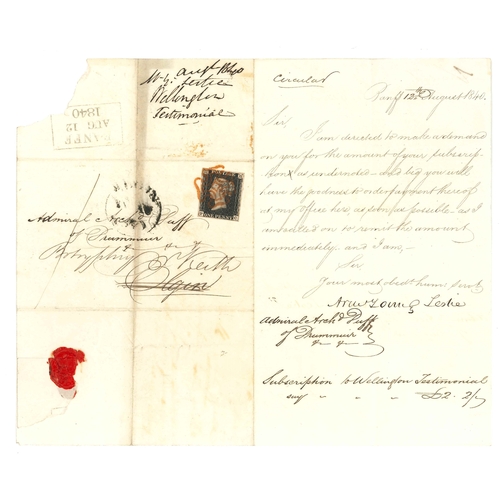 12 Augt 1840
Leslie
Wellington
Testimonial
BANFF
AUG 12
1840
ELGIN
POSTAGE
ONE PENNY
Admiral Archd Duff
of Drummuir
Keith
Elgin
Circular
Banff 12th August 1840.
Sir
I am directed to make a demand
on you for the amount of your subscrip-
tion as undernoted - and beg you will
have the goodness to order payment thereof
at my office here, as soon as possible - as I
am called on to remit the amount
immediately, and I am, -
Sir
Your most obedt humle servt
Young Leslie
Admiral Archd Duff
of Drummuir
Subscription to Wellington Testimonial
say " " " £2. 2/-